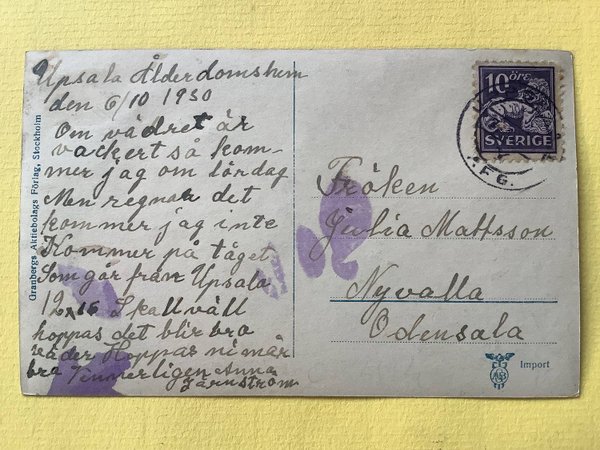 Upsala Ålderdomshem
den 6/10 1930
Om vädret är
vackert så kom-
mer jag om lördag
Men regnar det
kommer jag inte
Kommer på tåget
Som går från Upsala
12 Skall väll
hoppas det blir bra
väder Hoppas ni mår
bra Vännerligen Anna
Järnström
Granbergs Aktiebolags Förlag, Stockholm
10 ÖRE
SVERIGE
Fröken
Julia Mattsson
Nyvalla
Odensala
Import